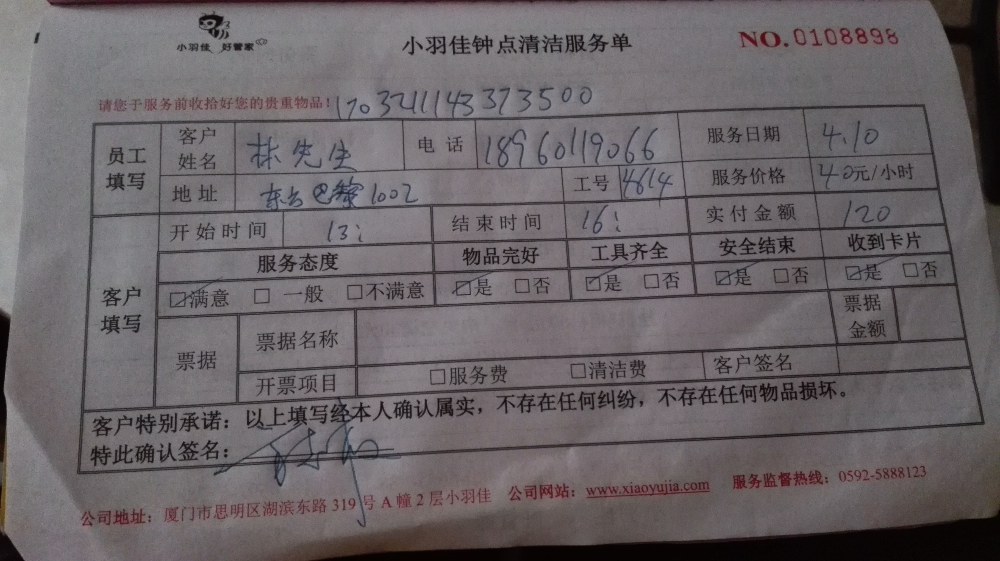 小羽佳 好管家
小羽佳钟点清洁服务单
NO.0108898
请您于服务前收拾好您的贵重物品！ 170321143373500
员工填写 客户姓名 林先生 电话 18960119066 服务日期 4.10
地址 1002 工号 4814 服务价格 40元/小时
客户填写 开始时间 13: 结束时间 16: 实付金额 120
服务态度 物品完好 工具齐全 安全结束 收到卡片
☑满意 □一般 □不满意 ☑是 □否 ☑是 □否 ☑是 □否 ☑是 □否
票据 票据名称 票据金额
开票项目 □服务费 □清洁费 客户签名
客户特别承诺：以上填写经本人确认属实，不存在任何纠纷，不存在任何物品损坏。
特此确认签名：
公司地址：厦门市思明区湖滨东路 319 号 A 幢 2 层小羽佳 公司网站：www.xiaoyujia.com 服务监督热线：0592-5888123